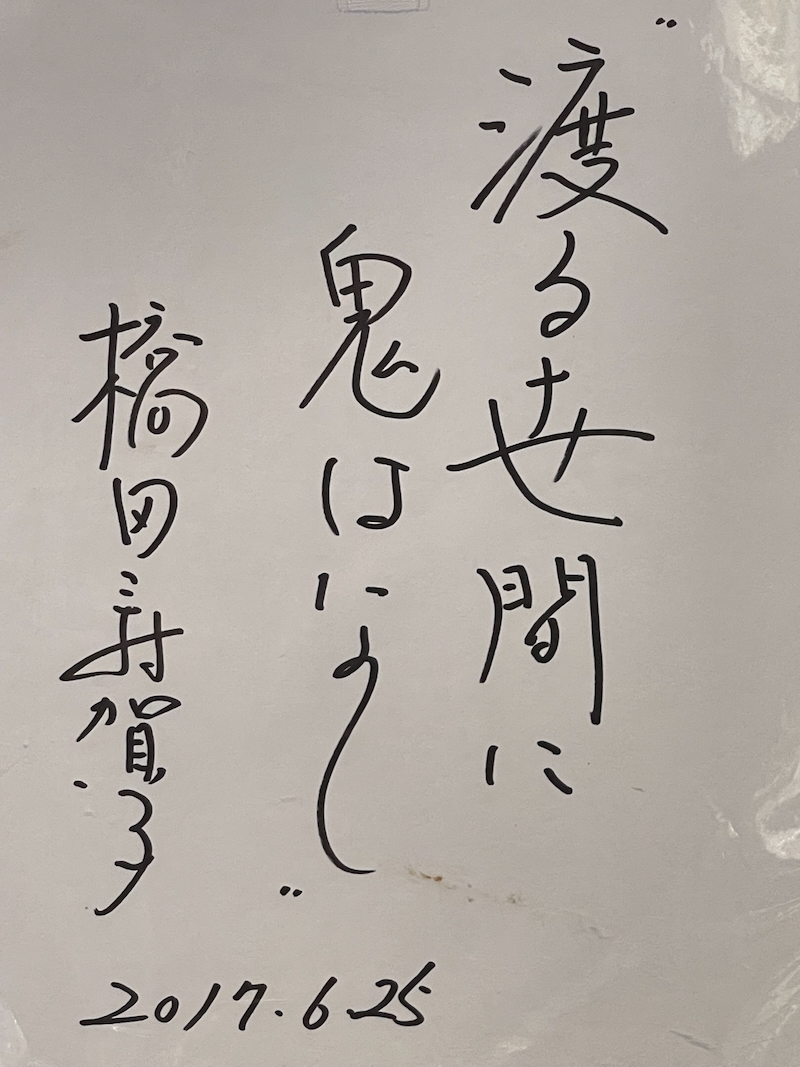 〝渡る世間に
鬼はなし〟
橋田寿賀子
2017.6.25